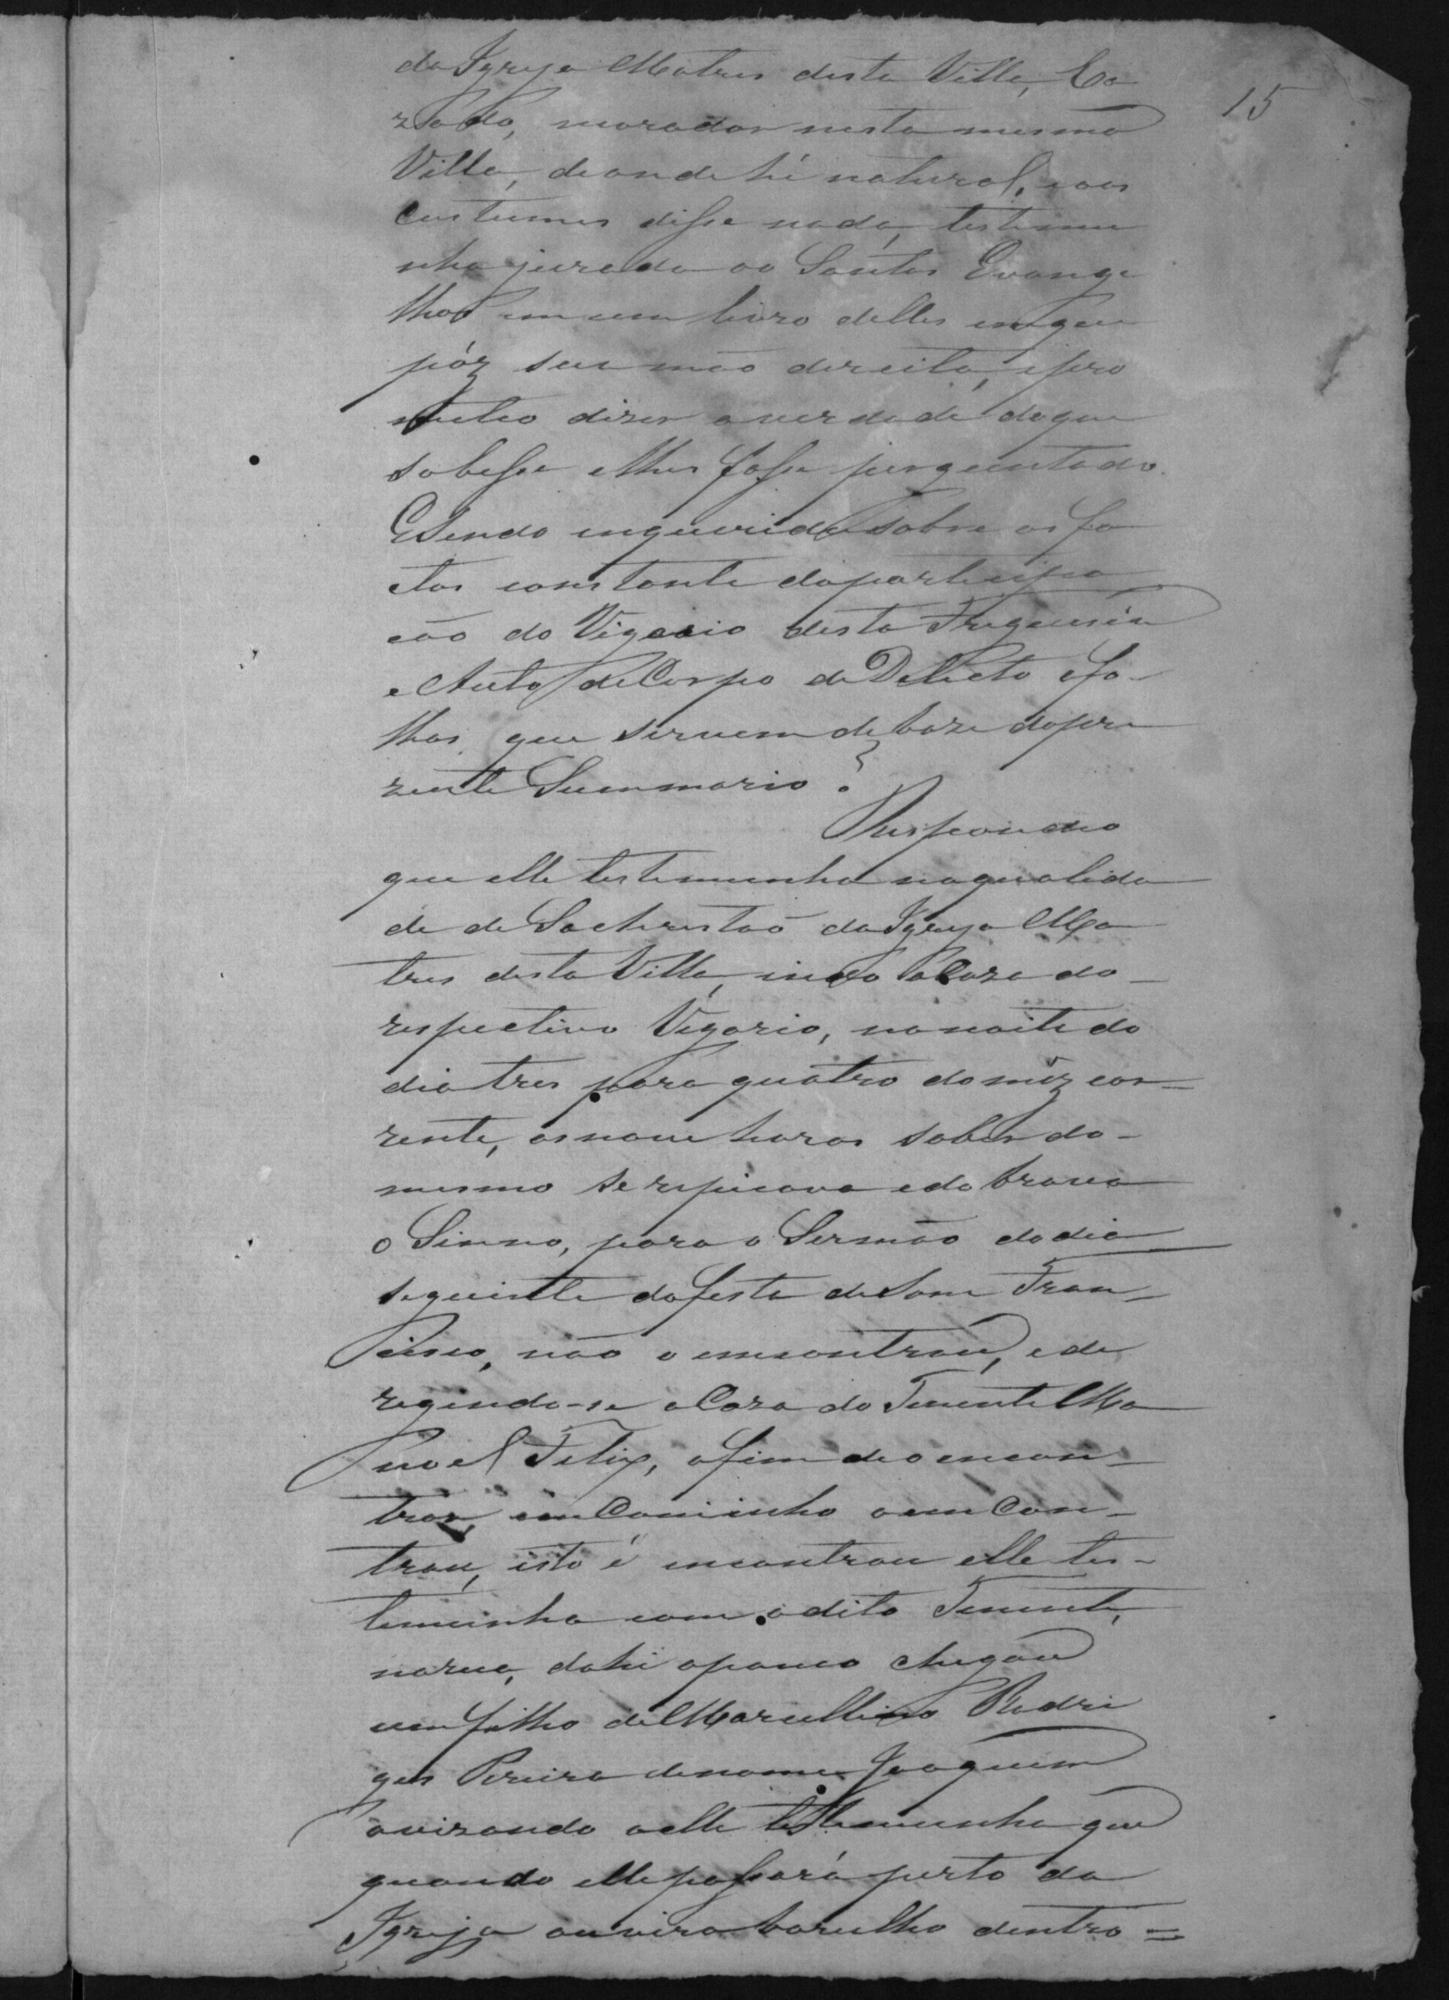 15
da Igreja Matris desta Villa, Ca
zado, morador nesta mesma
Villa, deonde hé natural, eaos
custumes disse nada, testemu
nha jurada ao Santos Evange
lhos em um livro delles emque
póz sua mão direita, epro
meteo dizer averdade doque
sobesse elhes fosse perguntado.
Esendo inquerido sobre os fa
ctos constante daparticipa
ção do Vigario desta Freguesia
e Auto de Corpo de Delicto efo-
lhas que servem de baze dopre
zente Summario?
Respondeo
que elle testemunha naqualida
de de Sachristaõ da Igreja Ma
tris desta Villa, indo aCaza do-
respectivo Vigario, nanoite do
dia tres para quatro do mêz cor-
rente, asnove horas saber do-
mesmo se repicava edobrava
o Sinno, para o Sermão dodia
seguinte dafesta deSam Fran-
cisco, não o emcontrou, ede
regindo-se aCaza do Tenente Ma
noel Felix, afim deoencon-
trar, em Caminho oemcon-
trou, isto é encontrou elle tes-
temunha com odito Tenente,
narua, dahi apouco chegou
um filho de Marcellino Rodri
gues Pereira denome Joaquim
avizando aelle testemunha que
quando elle passará perto da
Igreja ouvira barulho dentro=